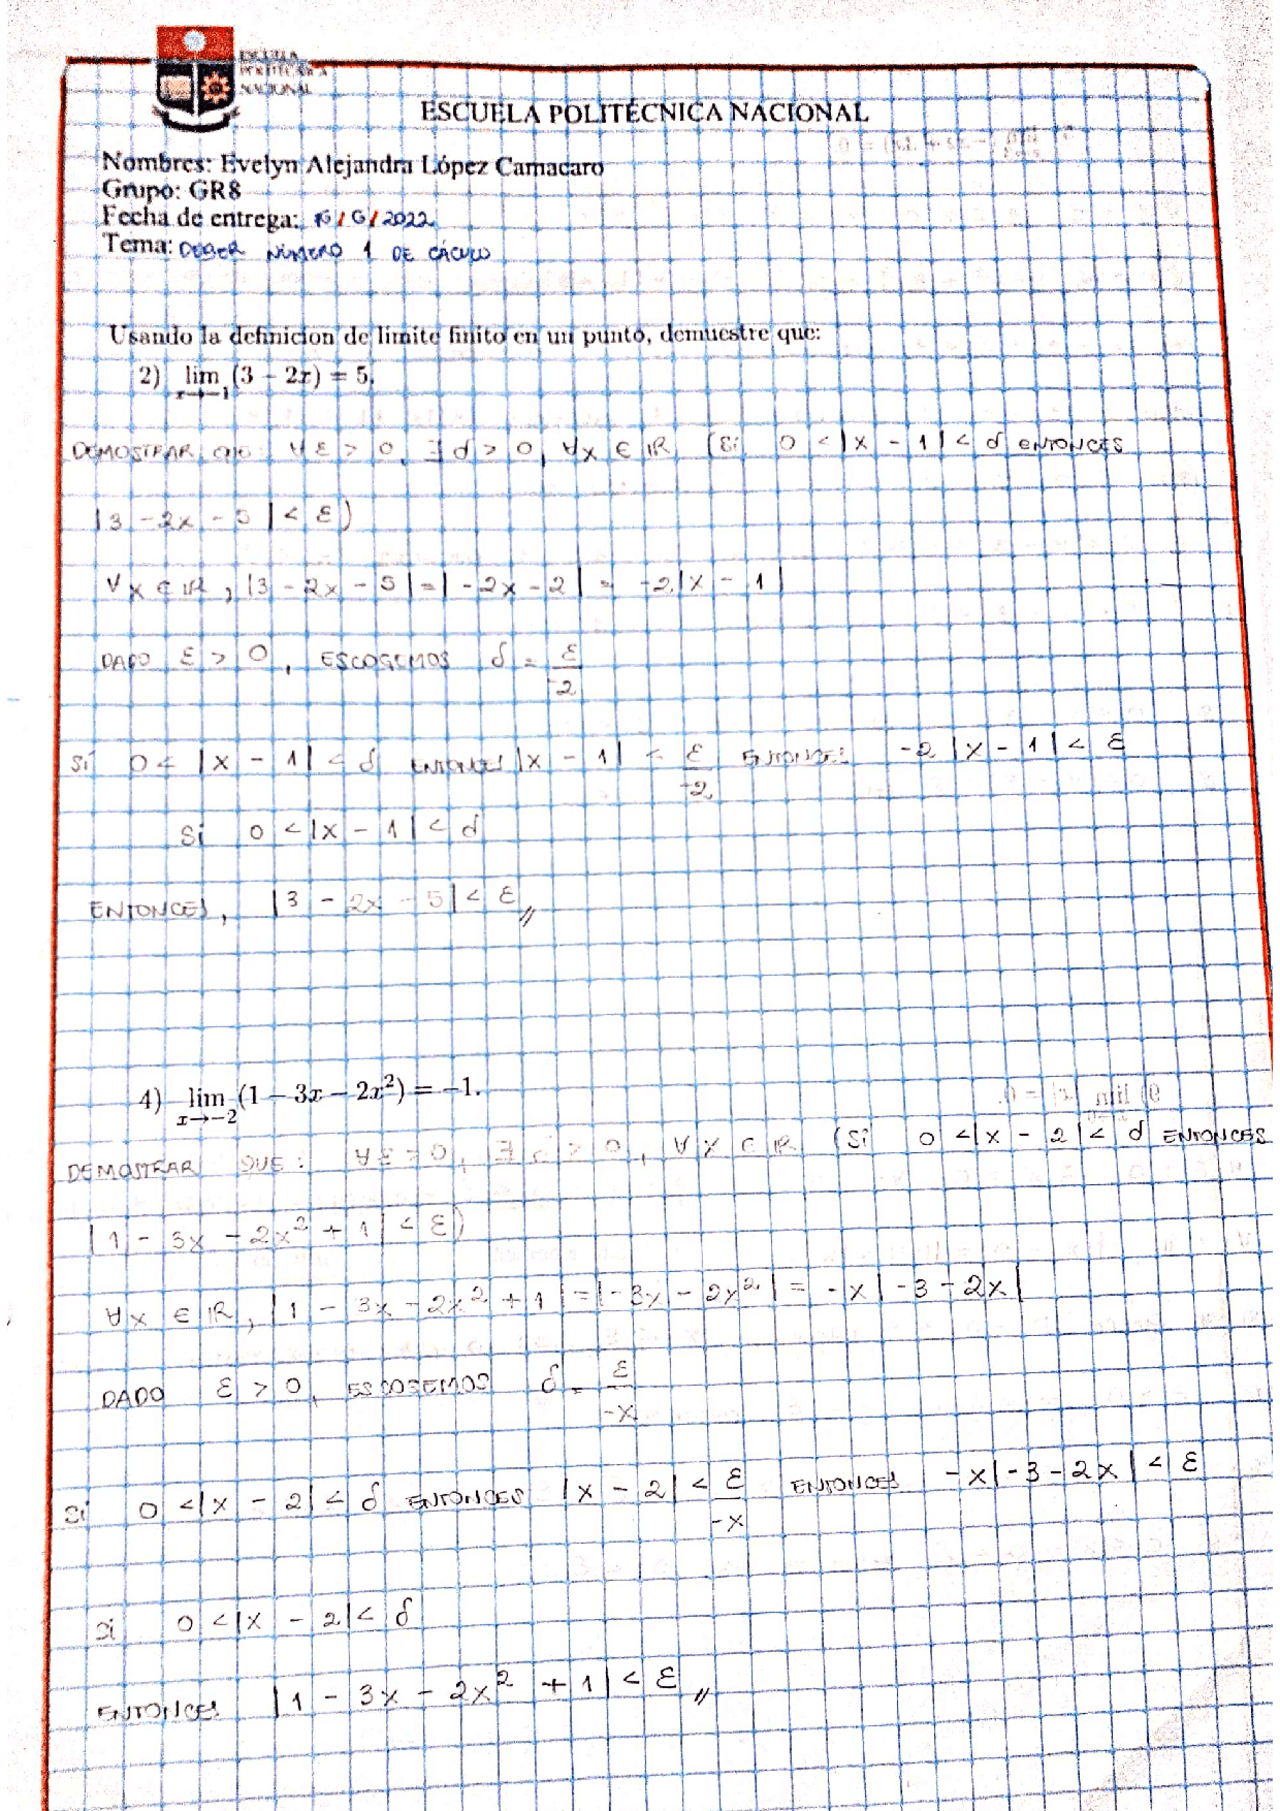 ESCUELA
POLITÉCNICA
NACIONAL
ESCUELA POLITÉCNICA NACIONAL
Nombres: Evelyn Alejandra López Camacaro
Grupo: GR8
Fecha de entrega: 16/6/2022
Tema: DEBER NÚMERO 1 DE CÁCULO
Usando la definicion de limite finito en un punto, demuestre que:
2) lim x→-1 (3 − 2x) = 5.
DEMOSTRAR QUE: ∀ε > 0, ∃ d > 0, ∀x ∈ IR (Si 0 < |x - 1| < d ENTONCES
|3 - 2x - 5| < ε)
∀x ∈ IR, |3 - 2x - 5| = |-2x - 2| = -2|x - 1|
DADO ε > 0, ESCOGEMOS δ = ε/-2
Si 0 < |x - 1| < δ ENTONCES |x - 1| < ε/-2 ENTONCES -2|x - 1| < ε
Si 0 < |x - 1| < d
ENTONCES, |3 - 2x - 5| < ε //
4) lim x→-2 (1 − 3x − 2x²) = −1.
DEMOSTRAR QUE: ∀ε > 0, ∃ d > 0, ∀x ∈ IR (Si 0 < |x - 2| < d ENTONCES
|1 - 3x - 2x² + 1| < ε)
∀x ∈ IR, |1 - 3x - 2x² + 1| = |-3x - 2x²| = -x|-3 - 2x|
DADO ε > 0, ESCOGEMOS δ = ε/-x
Si 0 < |x - 2| < δ ENTONCES |x - 2| < ε/-x ENTONCES -x|-3 - 2x| < ε
Si 0 < |x - 2| < δ
ENTONCES |1 - 3x - 2x² + 1| < ε //